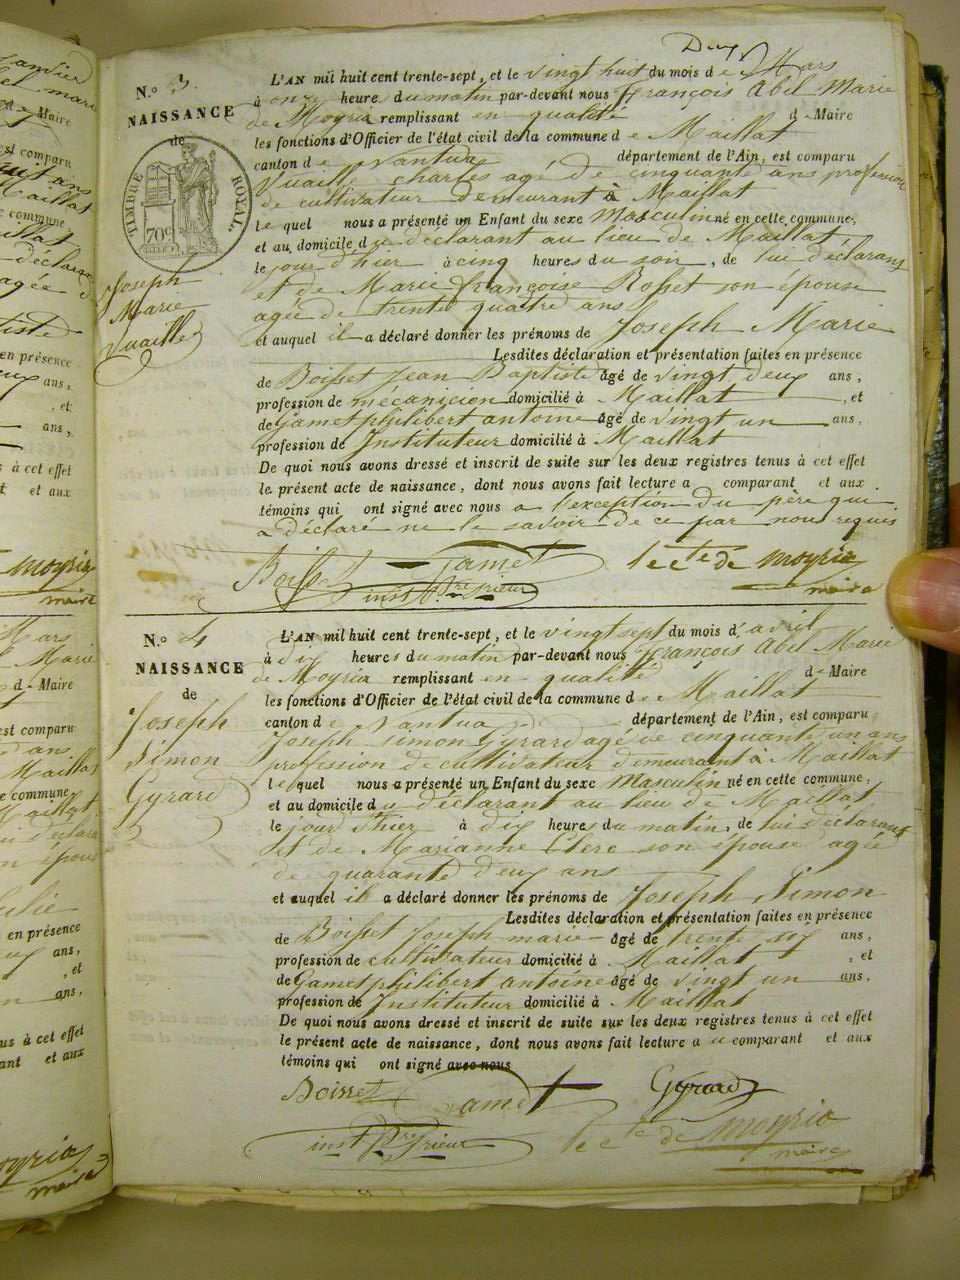 Deux
N.o 3.
NAISSANCE
de
TIMBRE ROYAL
70c
Joseph
Marie
Vuaille
L'AN mil huit cent trente-sept, et le vingt huit du mois de Mars
à onze heures du matin par-devant nous François Abel Marie
de Moyria remplissant en qualité de Maire
les fonctions d'Officier de l'état civil de la commune de Maillat
canton de Nantua département de l'Ain, est comparu
Vuaille Charles agé de cinquante ans profession
de cultivateur demeurant à Maillat
lequel nous a présenté un Enfant du sexe Masculin né en cette commune,
et au domicile du déclarant au lieu de Maillat,
le jour d'hier à cinq heures du soir, de lui déclarant
et de Marie Françoise Rosset son épouse
agée de trente quatre ans
et auquel il a déclaré donner les prénoms de Joseph Marie
Lesdites déclaration et présentation faites en présence
de Boisset Jean Baptiste âgé de vingt deux ans,
profession de mécanicien domicilié à Maillat, et
de Gamet philibert antoine âgé de vingt un ans,
profession de Instituteur domicilié à Maillat
De quoi nous avons dressé et inscrit de suite sur les deux registres tenus à cet effet
le présent acte de naissance, dont nous avons fait lecture a comparant et aux
témoins qui ont signé avec nous a l'exception du père qui
a déclaré ne le savoir de ce par nous requis
Boisset Gamet le cte de Moyria
inst Prrieur maire
N.o 4
NAISSANCE
de
Joseph
Simon
Gyrard
L'AN mil huit cent trente-sept, et le vingt sept du mois d'avril
à dix heures du matin par-devant nous François Abel Marie
de Moyria remplissant en qualité de Maire
les fonctions d'Officier de l'état civil de la commune de Maillat
canton de Nantua département de l'Ain, est comparu
Joseph Simon Gyrard agé de cinquante un ans
profession de cultivateur demeurant à Maillat
lequel nous a présenté un Enfant du sexe Masculin né en cette commune,
et au domicile du déclarant au lieu de Maillat
le jour d'hier à dix heures du matin, de lui déclarant
et de Marianne Clerc son épouse agée
de quarante deux ans
et auquel il a déclaré donner les prénoms de Joseph Simon
Lesdites déclaration et présentation faites en présence
de Boisset Joseph marie âgé de trente six ans,
profession de cultivateur domicilié à Maillat, et
de Gamet philibert antoine âgé de vingt un ans,
profession de Instituteur domicilié à Maillat
De quoi nous avons dressé et inscrit de suite sur les deux registres tenus à cet effet
le présent acte de naissance, dont nous avons fait lecture a u comparant et aux
témoins qui ont signé avec nous
Boisset Gamet Gyrard
inst Prrieur le cte de Moyria
maire